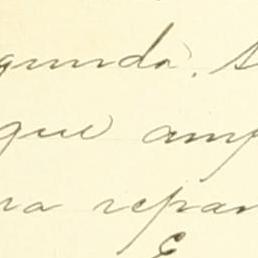 gunda, A
que amp
ra repar
E